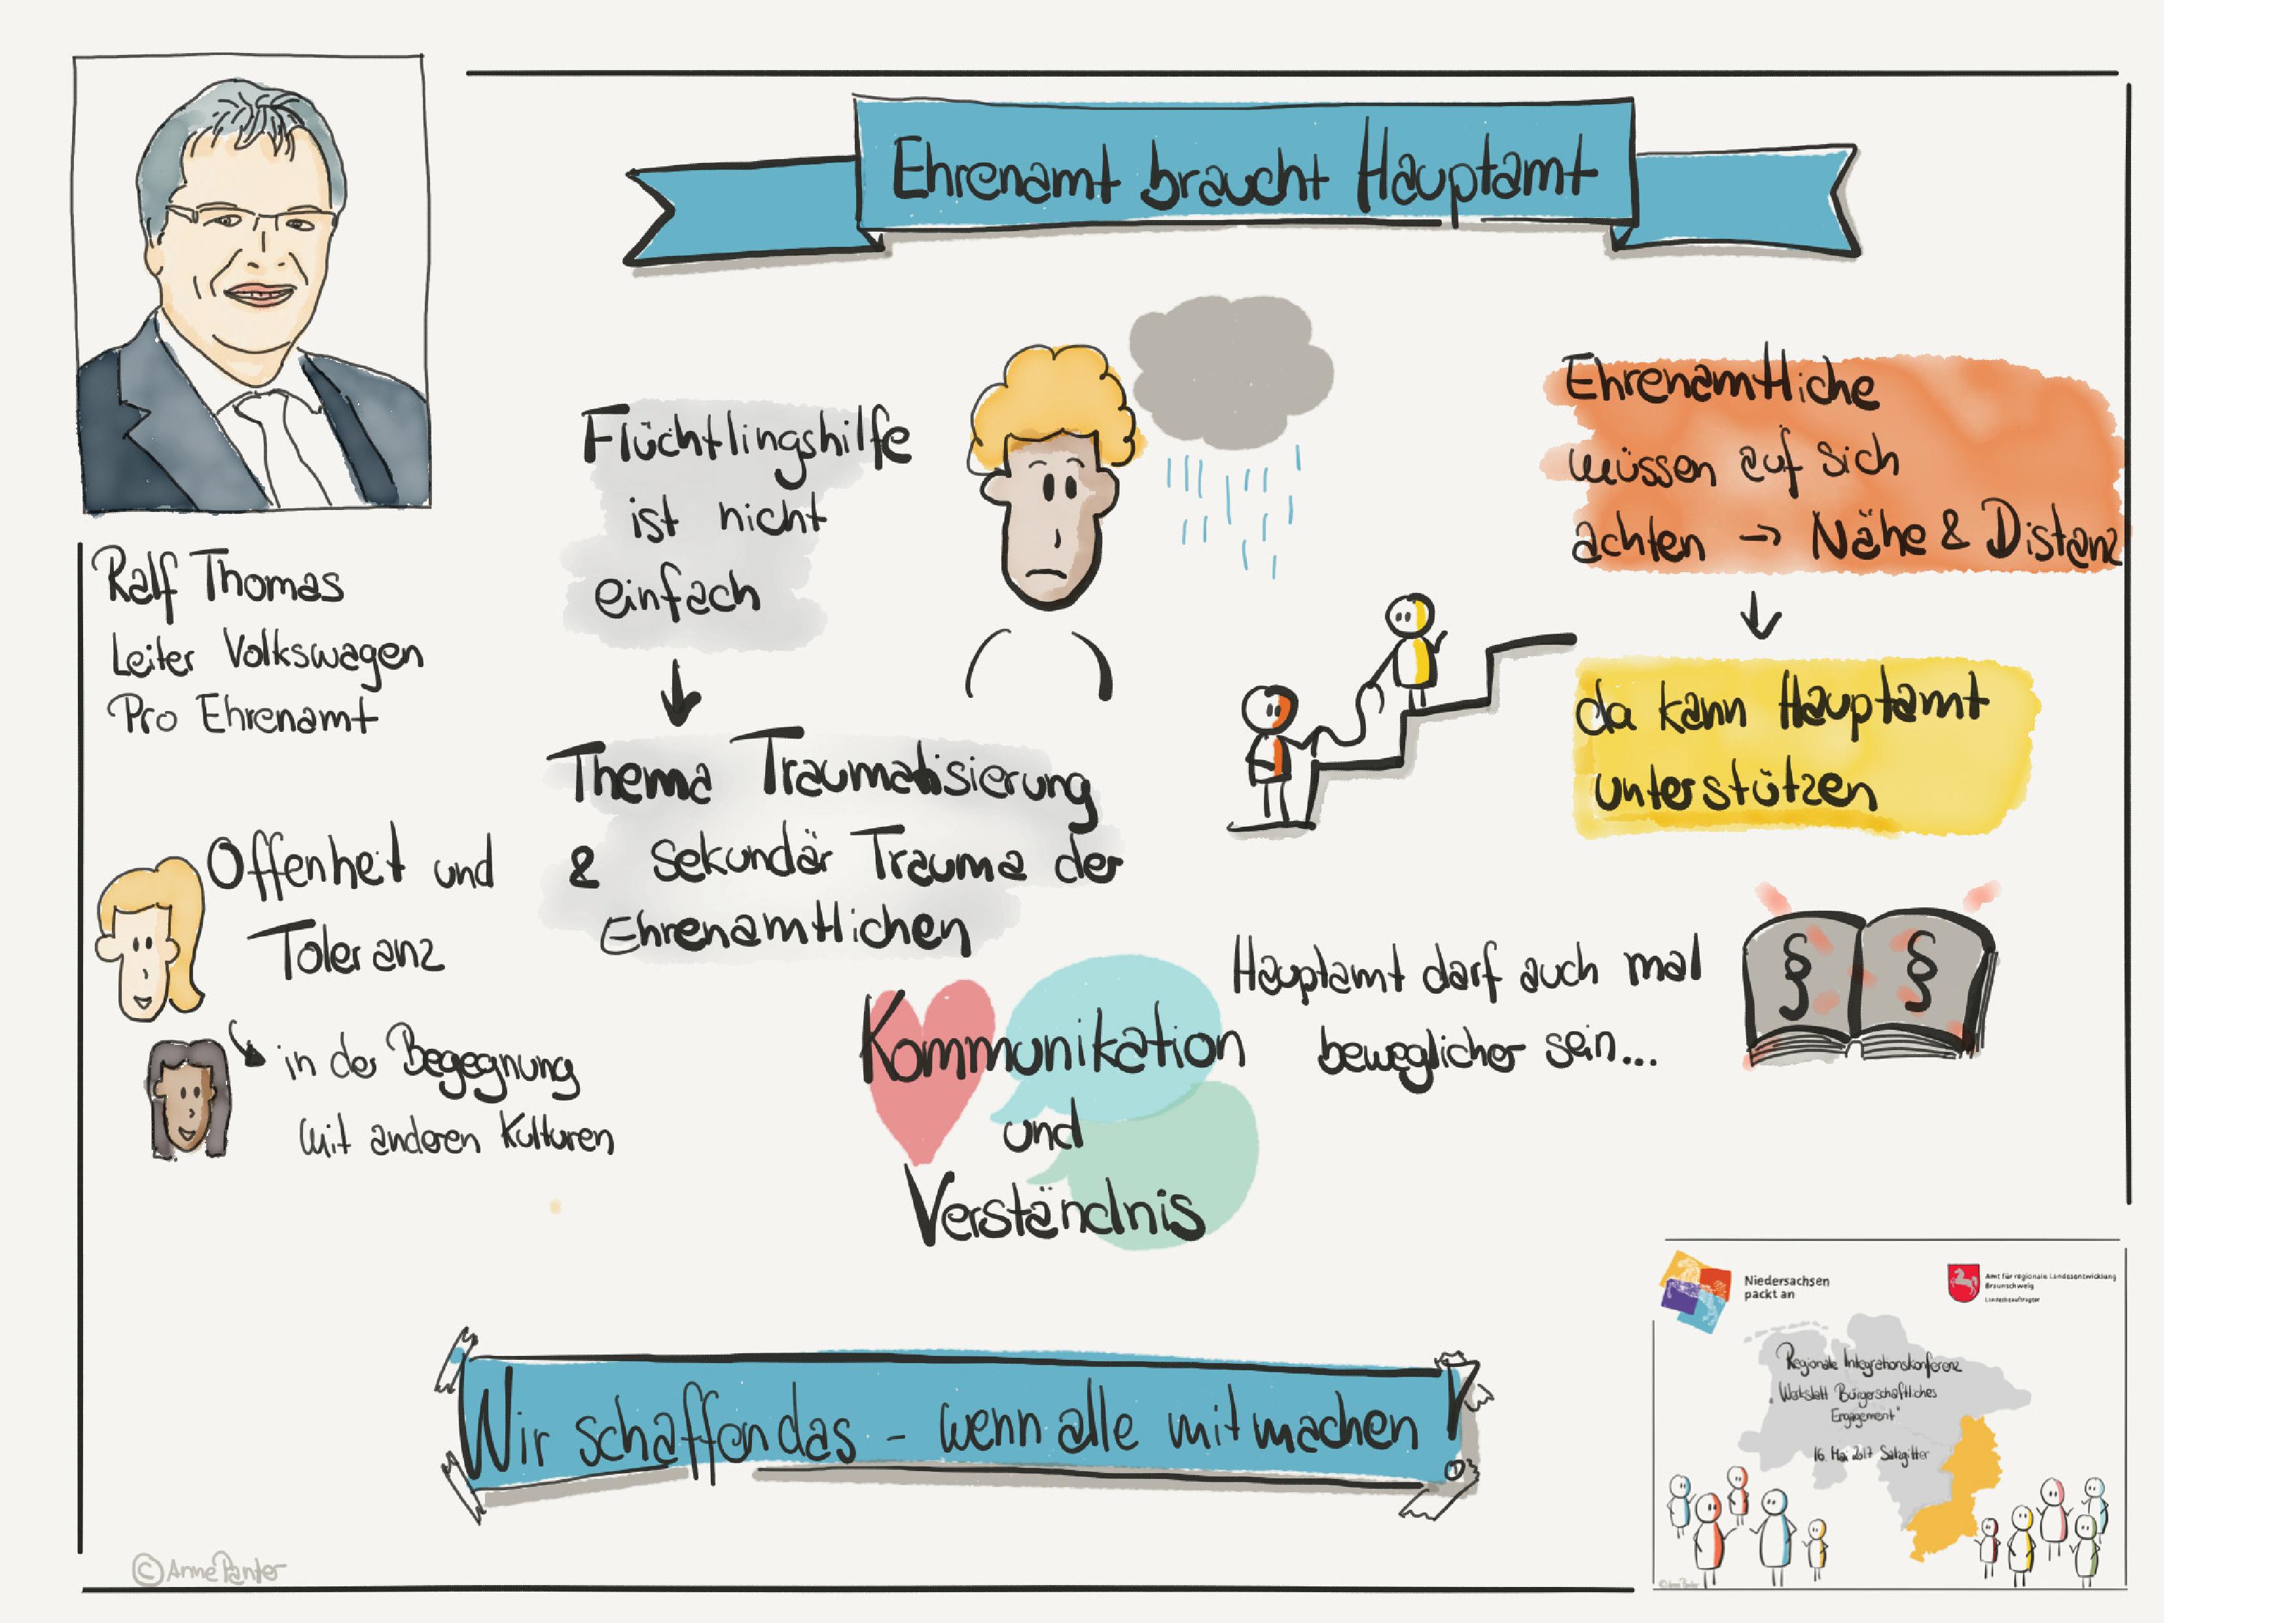 Ehrenamt braucht Hauptamt
Ralf Thomas
Leiter Volkswagen
Pro Ehrenamt
Offenheit und
Toleranz
in der Begegnung
mit anderen Kulturen
Flüchtlingshilfe
ist nicht
einfach
Thema Traumatisierung
& Sekundär Trauma der
Ehrenamtlichen
Ehrenamtliche
müssen auf sich
achten → Nähe & Distanz
da kann Hauptamt
unterstützen
Hauptamt darf auch mal
beweglicher sein...
§ §
Kommunikation
und
Verständnis
Wir schaffen das - wenn alle mitmachen!
Niedersachsen
packt an
Amt für regionale Landesentwicklung
Braunschweig
Landesbeauftragter
Regionale Integrationskonferenz
„Werkstatt Bürgerschaftliches
Engagement"
16. Mai 2017 Salzgitter
© Anne Panter
© Anne Panter